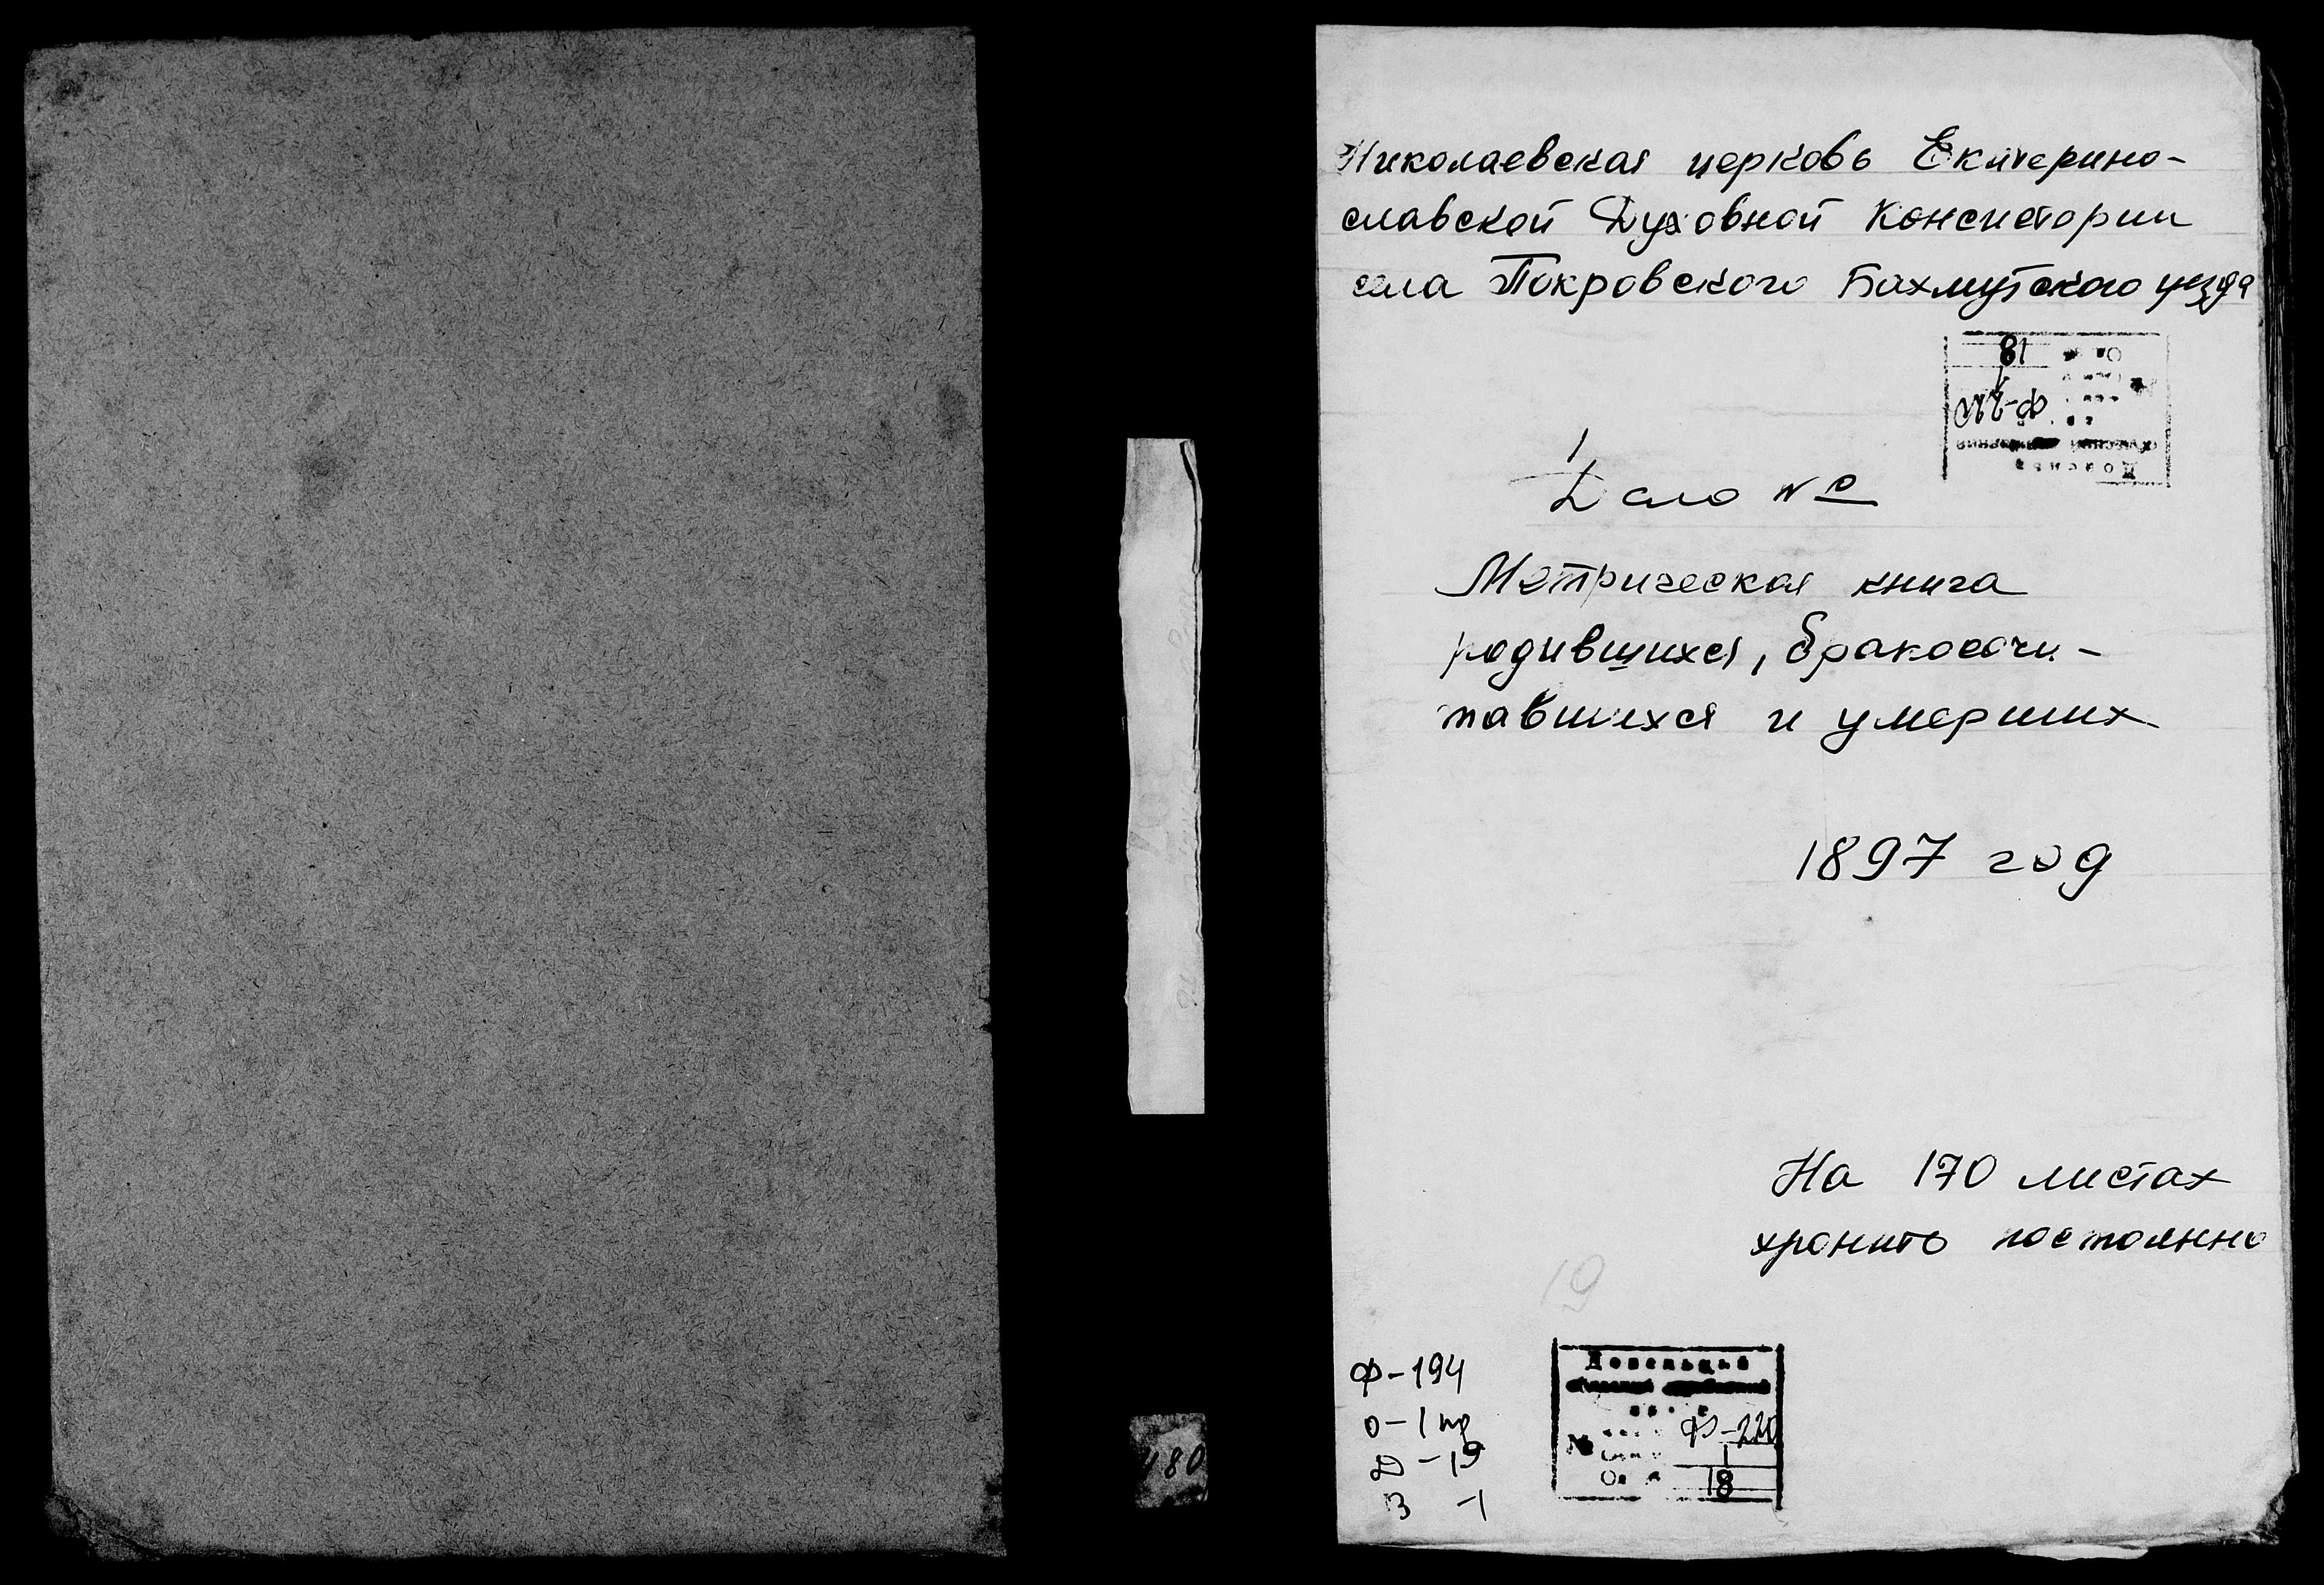 Николаевская церковь Екатерино-
славской Духовной Консистории
села Покровского Бахмутского уезда
18
1
Дело №
Метрическая книга
родившихся, бракосочи-
тавшихся и умерших
1897 год
На 170 листах
хранить постоянно
19
Ф-194
О-1
Д-19
З -1
№
Ф-220
1
18
480